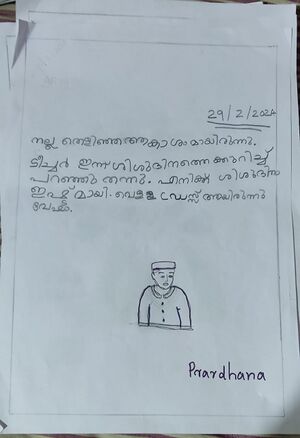 29/2/2024
നല്ല തെളിഞ്ഞആകാശംമായിരുന്നു.
ടീച്ചർ ഇന്ന് ശിശുദിനത്തെക്കുറിച്ച്
പറഞ്ഞു തന്നു. എനിക്ക് ശിശുദിനം
ഇഷ്ട്ടമായി. വെള്ള ഡ്രസ്സ് ആയിരുന്നു
വേഷം.
Prardhana